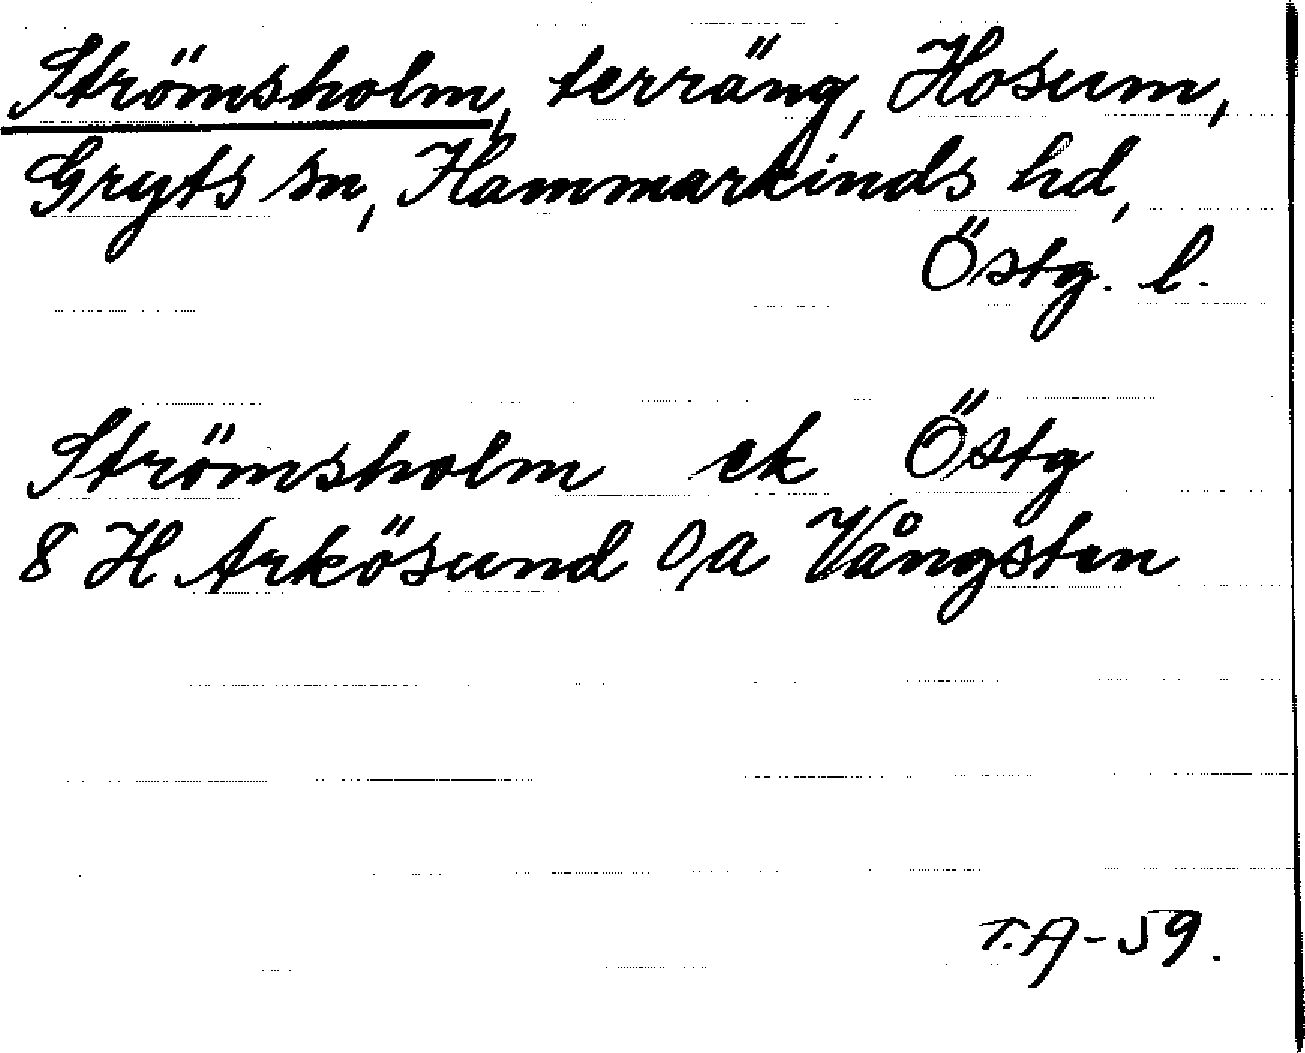 Strömsholm, terräng, Hosum,
Gryts sn, Hammarkinds hd,
Östg. l.
Strömsholm ek Östg
8 H Arkösund 0/a Vångsten
T.A-59.